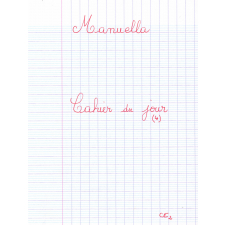 Manuella
Cahier du jour
(4)
CE2